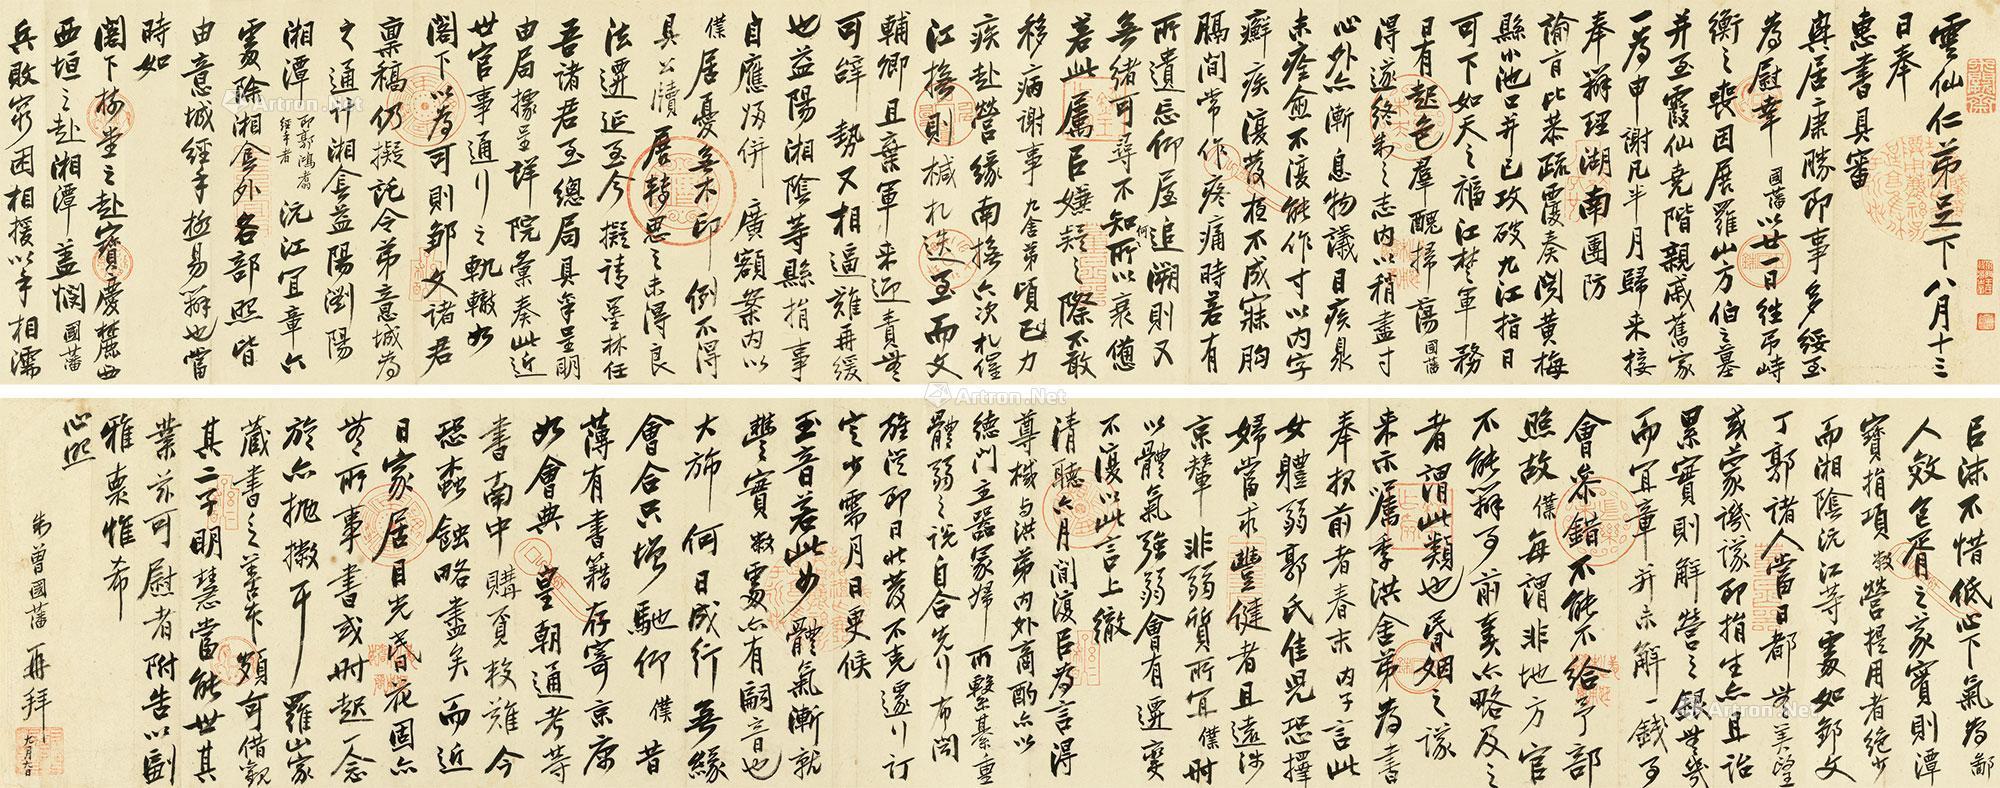 雲仙仁弟足下八月十三
日奉
惠書具審
興居康勝即事多綏至
為慰幸國藩以廿一日往弔峙
衡之喪因展羅山方伯之墓
并至霞仙堯階親戚舊家
一為申謝凡半月歸來接
奉辦理湖南團防
諭旨比恭疏覆奏閱黃梅
縣小池口并已攻破九江指日
可下如天之福江楚軍務
日有起色羣醜掃蕩國藩
得遂終制之志內以稍盡寸
心外亦漸息物議目疾泉
未痊愈不復能作寸以內字
癬疾復發極不成寐胸
膈間常作疼痛時若有
所遺忘仰屋追溯則又
無緒可尋不知何所以衰憊
若此厲臣嫌疑之際不敢
移病謝事九舍弟頃已力
疾赴營緣南撫六次札催
江撫則椷札迭至而文
輔卿且棄軍來迎責無
可辭勢又相逼難再緩
也益陽湘陰等縣捐事
自應歸併廣額案內以
僕居憂無木印倒不得
具公牘展轉思之未得良
法遷延至今擬請墨林任
吾諸君至總局具拿呈明
由局據呈詳院彙奏此近
世官事通行之軌轍如
閣下以為可則鄒文諸君
稟稿仍擬託令弟意城為
之通計湘食益陽瀏陽
湘潭即郭鴻翥經手者沅江宜章六
處除湘食外各部照皆
由意城經手極易辦也當
時如
閣下梅堂之赴寶慶蓮西
西垣之赴湘潭蓋憫國藩
兵敗窮困相援以手相濡
以沫不惜低心下氣為鄙
人效包胥之哀實則潭
寶捐項敝營提用者絕少
而湘陰沅江等處如鄒文
丁郭諸人當日都無美望
或蒙譏議即捐生亦且詒
累實則解營之銀無幾
而宜章并未解一錢可
會參錯不能不給予部
照故僕每謂非地方官
不能辦可前箋亦略及之
者謂此類也昏姻之議
來示屬季洪舍弟為書
奉報前者春末內子言此
女體弱郭氏佳兒恐擇
婦當求豐健者且遠涉
京輦非弱質所宜僕時
以體氣強弱會有遷變
不復以此言上徹
清聽六月間復以為言得
尊椷與洪弟內外商酌亦以
德門主器冢婦所繫綦重
體弱之說自合先行布聞
旌從即日北發不克遽行訂
定少需月日更候
玉音若此女體氣漸就
豐實敝處亦有嗣音也
大旆何日成行無緣
會合只增馳仰僕昔
薄有書籍存寄京寓
如會典皇朝通考等
書南中購覓較難今
恐蠹蝕略盡矣而近
日家居目光眊花固亦
無所事書或時起一念
旋亦拋撇耳羅山家
藏書之善本頗可借觀
其二子明慧當能世其
業茲可慰者附告以副
雅稟惟希
心照
弟曾國藩再拜
九月六日
Artron.Net